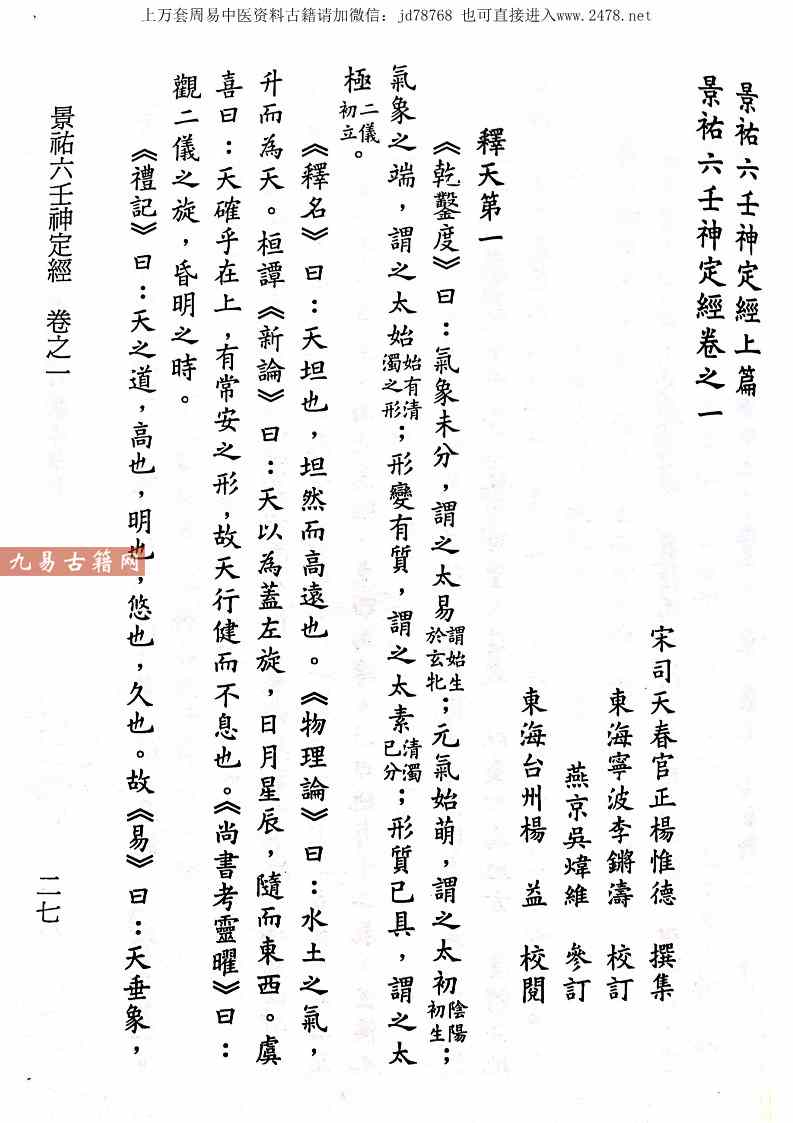 上万套周易中医资料古籍请加微信：jd78768 也可直接进入www.2478.net
景祐六壬神定經上篇
景祐六壬神定經卷之一
宋司天春官正楊惟德 撰集
東海寧波李鏘濤 校訂
燕京吳煒維 參訂
東海台州楊 益 校閱
釋天第一
《乾鑿度》曰：氣象未分，謂之太易謂始生於玄牝；元氣始萌，謂之太初陰陽初生；
氣象之端，謂之太始始有清濁之形；形變有質，謂之太素清濁已分；形質已具，謂之太
極二儀初立。
《釋名》曰：天坦也，坦然而高遠也。《物理論》曰：水土之氣，
升而為天。桓譚《新論》曰：天以為蓋左旋，日月星辰，隨而東西。虞
喜曰：天確乎在上，有常安之形，故天行健而不息也。《尚書考靈曜》曰：
觀二儀之旋，昏明之時。
《禮記》曰：天之道，高也，明也，悠也，久也。故《易》曰：天垂象，
景祐六壬神定經 卷之一
二七
九易古籍网